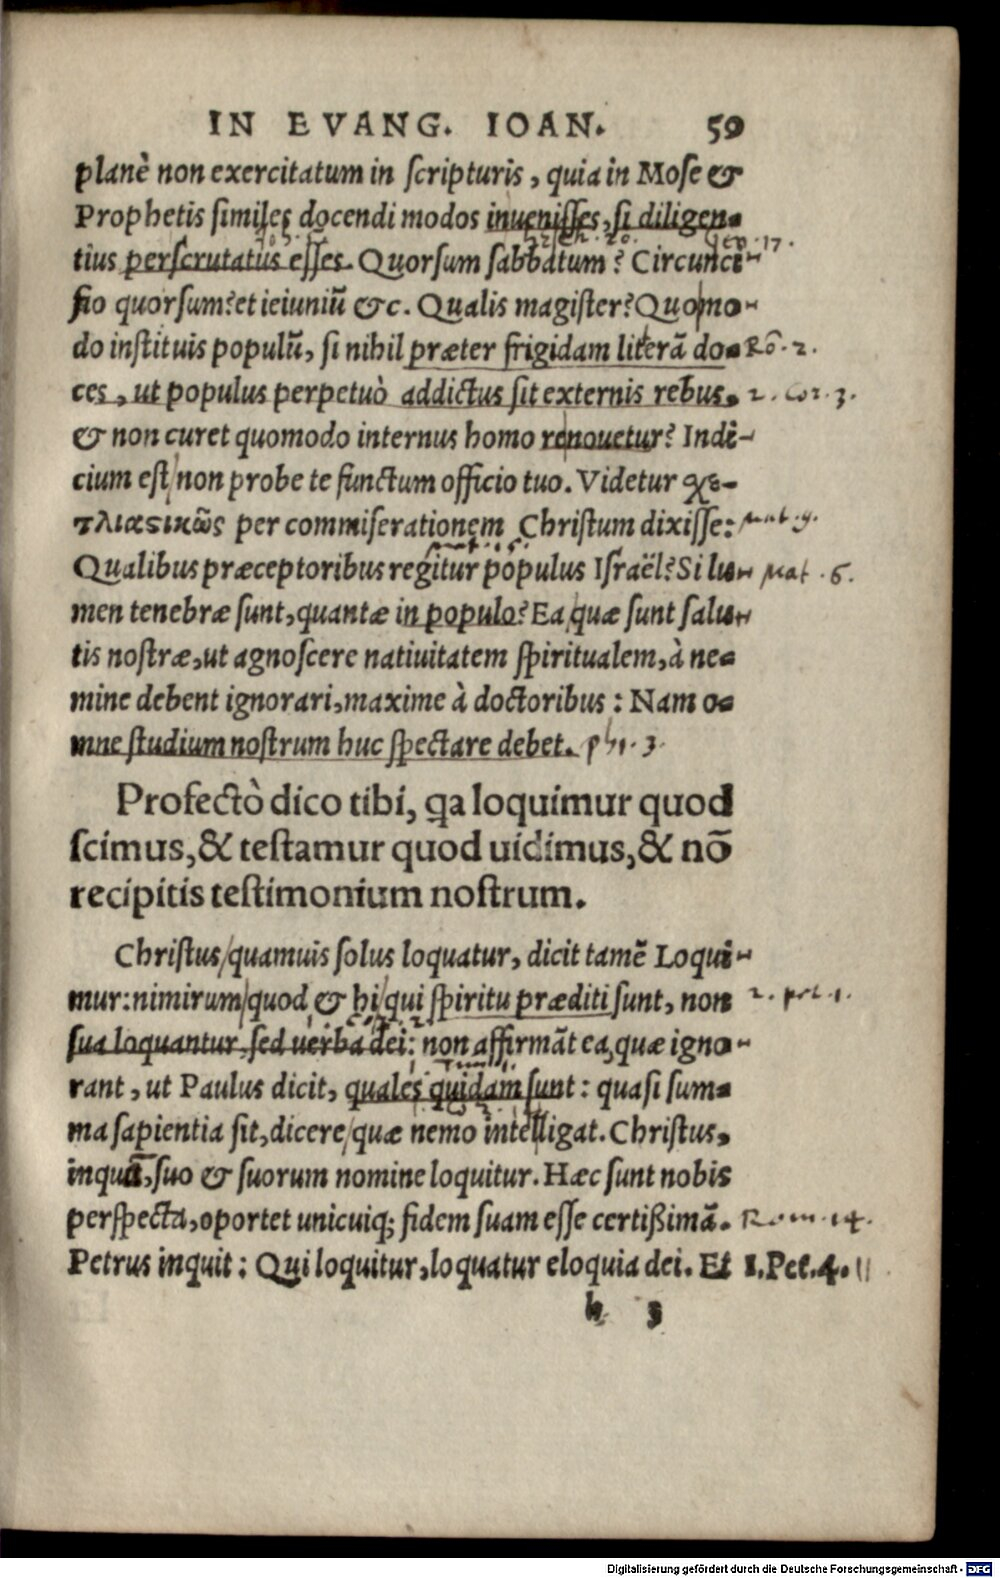 IN EVANG. IOAN. 59
planè non exercitatum in scripturis, quia in Mose &
Prophetis similes docendi modos inuenisses, si diligen-
tius perscrutatus esses. Quorsum sabbatum? Circunci- Gen. 17.
sio quorsum? et ieiuniũ &c. Qualis magister? Quomo-
do instituis populũ, si nihil præter frigidam literã do- Rõ. 2.
ces, ut populus perpetuò addictus sit externis rebus, 2. Cor. 3.
& non curet quomodo internus homo renouetur? Indi-
cium est/non probe te functum officio tuo. Videtur χε-
τλιαστικῶς per commiserationem Christum dixisse: Mat. 9.
Qualibus præceptoribus regitur populus Israël? Si lu- Mat. 6.
men tenebræ sunt, quantæ in populo? Ea quæ sunt salu-
tis nostræ, ut agnoscere natiuitatem spiritualem, à ne-
mine debent ignorari, maxime à doctoribus: Nam o-
mne studium nostrum huc spectare debet. phi. 3.
Profectò dico tibi, qa loquimur quod
scimus, & testamur quod uidimus, & nõ
recipitis testimonium nostrum.
Christus/quamuis solus loquatur, dicit tamẽ Loqui-
mur: nimirum/quod & hi/qui spiritu præditi sunt, non 2. pet. 1.
sua loquantur, sed uerba dei: non affirmãt ea, quæ igno-
rant, ut Paulus dicit, quales quidam sunt: quasi sum-
ma sapientia sit, dicere/quæ nemo intelligat. Christus,
inquã, suo & suorum nomine loquitur. Hæc sunt nobis
perspecta, oportet unicuiq; fidem suam esse certißimã. Rom. 14.
Petrus inquit: Qui loquitur, loquatur eloquia dei. Et 1. Pet. 4.
h 3
Digitalisierung gefördert durch die Deutsche Forschungsgemeinschaft - DFG